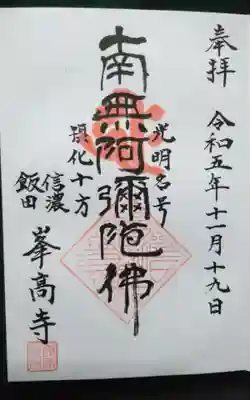 奉拝
令和五年十一月十九日
光明名号
南無阿彌陀佛
摂化十方
信濃
飯田
峯高寺